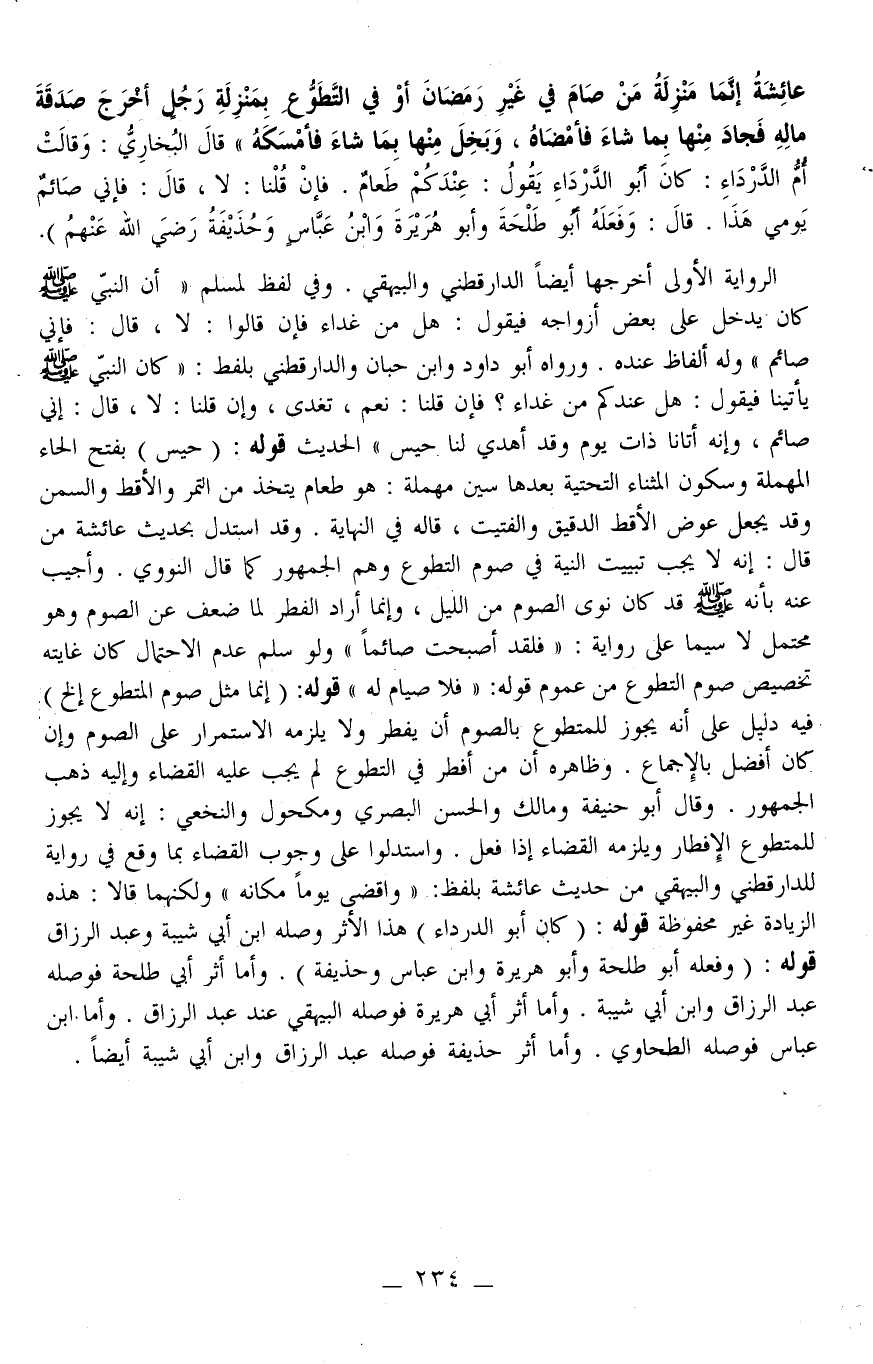 عائِشَةُ إنَّمَا مَنْزِلَةُ مَنْ صَامَ في غَيْرِ رَمَضَانَ أوْ في التَّطَوُّعِ بِمَنْزِلَةِ رَجُلٍ أخْرَجَ صَدَقَةَ
مالِهِ فَجادَ مِنْها بِما شاءَ فأمْضَاهُ ، وَبَخِلَ مِنْها بِمَا شاءَ فأمْسَكَهُ » قالَ البُخاريُّ : وَقالَتْ
أُمُّ الدَّرْدَاءِ : كانَ أبُو الدَّرْدَاءِ يَقُولُ : عِنْدَكُمْ طَعامٌ . فإنْ قُلْنا : لا ، قالَ : فإني صَائمٌ
يَومي هَذَا . قالَ : وَفَعَلَهُ أبُو طَلْحَةَ وأبو هُرَيْرَةَ وَابْنُ عَبَّاسٍ وَحُذَيْفَةُ رَضيَ الله عَنْهمُ ).
الرواية الأولى أخرجها أيضاً الدارقطني والبيهقي . وفي لفظ لمسلم « أن النبيّ ﷺ
كان يدخل على بعض أزواجه فيقول : هل من غداء فإن قالوا : لا ، قال : فإني
صائم » وله ألفاظ عنده . ورواه أبو داود وابن حبان والدارقطني بلفط : « كان النبيّ ﷺ
يأتينا فيقول : هل عندكم من غداء ؟ فإن قلنا : نعم ، تغدى ، وإن قلنا : لا ، قال : إني
صائم ، وإنه أتانا ذات يوم وقد أهدي لنا حيس » الحديث قوله : ( حيس ) بفتح الحاء
المهملة وسكون المثناء التحتية بعدها سين مهملة : هو طعام يتخذ من التمر والأقط والسمن
وقد يجعل عوض الأقط الدقيق والفتيت ، قاله في النهاية . وقد استدل بحديث عائشة من
قال : إنه لا يجب تبييت النية في صوم التطوع وهم الجمهور كما قال النووي . وأجيب
عنه بأنه ﷺ قد كان نوى الصوم من الليل ، وإنما أراد الفطر لما ضعف عن الصوم وهو
محتمل لا سيما على رواية : « فلقد أصبحت صائماً » ولو سلم عدم الاحتمال كان غايته
تخصيص صوم التطوع من عموم قوله: « فلا صيام له » قوله: ( إنما مثل صوم المتطوع إلخ )
فيه دليل على أنه يجوز للمتطوع بالصوم أن يفطر ولا يلزمه الاستمرار على الصوم وإن
كان أفضل بالإجماع . وظاهره أن من أفطر في التطوع لم يجب عليه القضاء وإليه ذهب
الجمهور . وقال أبو حنيفة ومالك والحسن البصري ومكحول والنخعي : إنه لا يجوز
للمتطوع الإفطار ويلزمه القضاء إذا فعل . واستدلوا على وجوب القضاء بما وقع في رواية
للدارقطني والبيهقي من حديث عائشة بلفظ: « واقضى يوماً مكانه » ولكنهما قالا : هذه
الزيادة غير محفوظة قوله : ( كان أبو الدرداء ) هذا الأثر وصله ابن أبي شيبة وعبد الرزاق
قوله : ( وفعله أبو طلحة وأبو هريرة وابن عباس وحذيفة ) . وأما أثر أبي طلحة فوصله
عبد الرزاق وابن أبي شيبة . وأما أثر أبي هريرة فوصله البيهقي عند عبد الرزاق . وأما ابن
عباس فوصله الطحاوي . وأما أثر حذيفة فوصله عبد الرزاق وابن أبي شيبة أيضاً .
— ٢٣٤ —